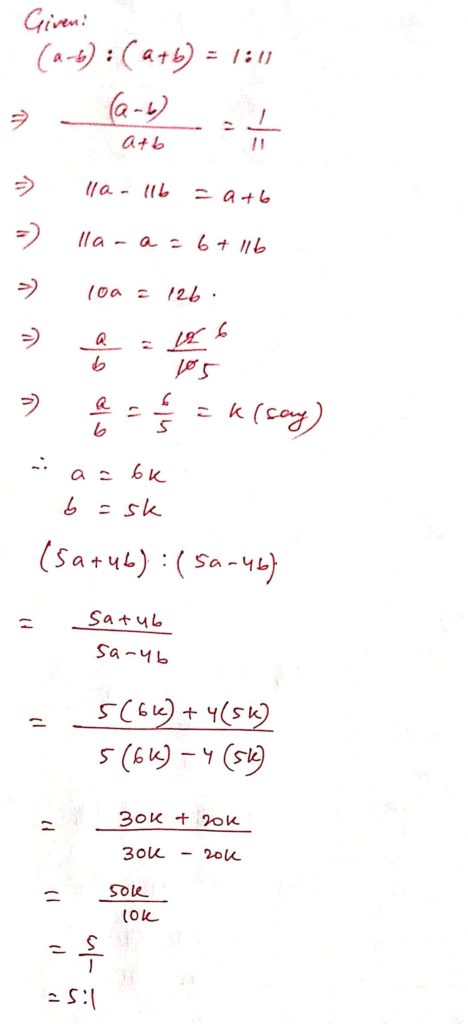 Given:
(a-b) : (a+b) = 1:11
⇒ (a-b)/a+b = 1/11
⇒ 11a - 11b = a+b
⇒ 11a - a = b + 11b
⇒ 10a = 12b.
⇒ a/b = 12 6/10 5
⇒ a/b = 6/5 = k (say)
∴ a = 6k
b = 5k
(5a+4b) : (5a-4b)
= 5a+4b/5a-4b
= 5(6k) + 4(5k)/5(6k) - 4(5k)
= 30k + 20k/30k - 20k
= 50k/10k
= 5/1
= 5:1